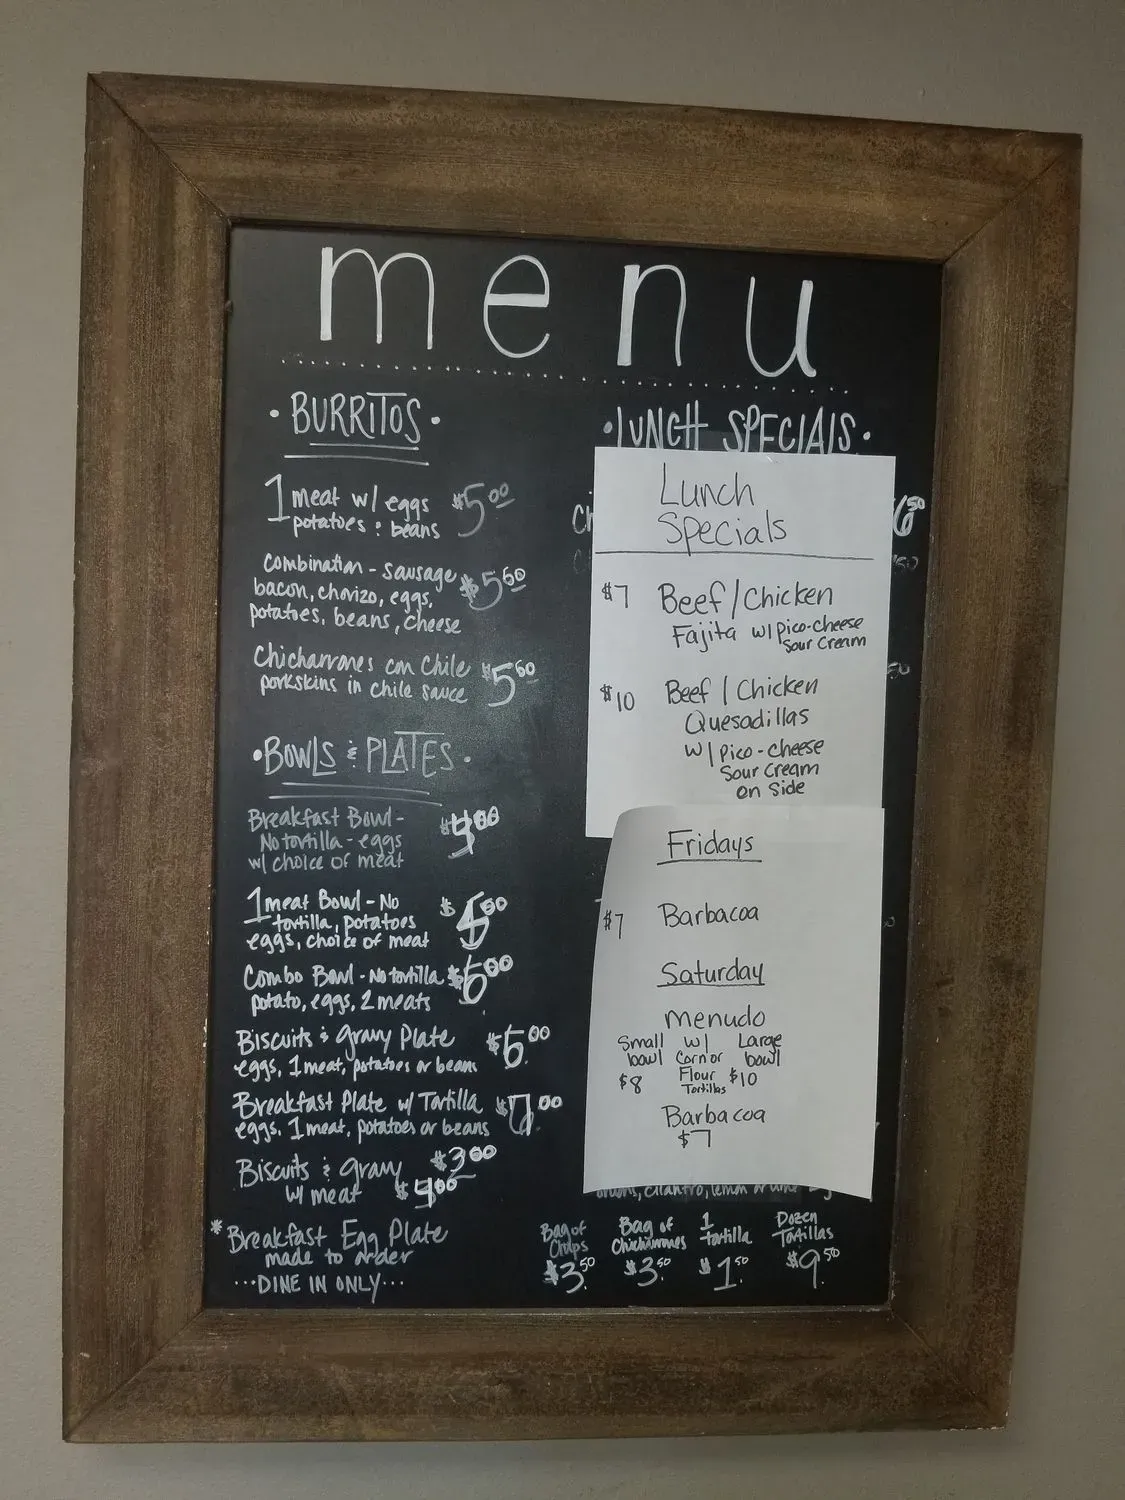 menu
• BURRITOS •
1 meat w/ eggs $5.00
potatoes : beans
Combination - sausage $5.50
bacon, chorizo, eggs,
potatoes, beans, cheese
Chicharrones con Chile $5.50
porkskins in chile sauce
• BOWLS & PLATES •
Breakfast Bowl -
No tortilla - eggs
w/ choice of meat
1 meat Bowl - No
tortilla, potatoes
eggs, choice of meat
Combo Bowl - No tortilla
potato, eggs, 2 meats
Biscuits & Gravy Plate
eggs, 1 meat, potatoes or beans
Breakfast Plate w/ Tortilla
eggs, 1 meat, potatoes or beans
Biscuits & Gravy $3.00
w/ meat $4.00
* Breakfast Egg Plate
made to order
...DINE IN ONLY...
• LUNCH SPECIALS •
Lunch
Specials
$7 Beef / Chicken
Fajita w/ pico-cheese
Sour Cream
$10 Beef / Chicken
Quesadillas
w/ pico-cheese
Sour Cream
on Side
Fridays
$7 Barbacoa
Saturday
Menudo
Small w/ Large
bowl Corn or bowl
$8 Flour $10
Tortillas
Barbacoa
$7
onions, cilantro, lemon or lime
Bag of Bag of 1 Dozen
Chips Chicharrones tortilla Tortillas
$3.50 $3.50 $1.50 $9.50